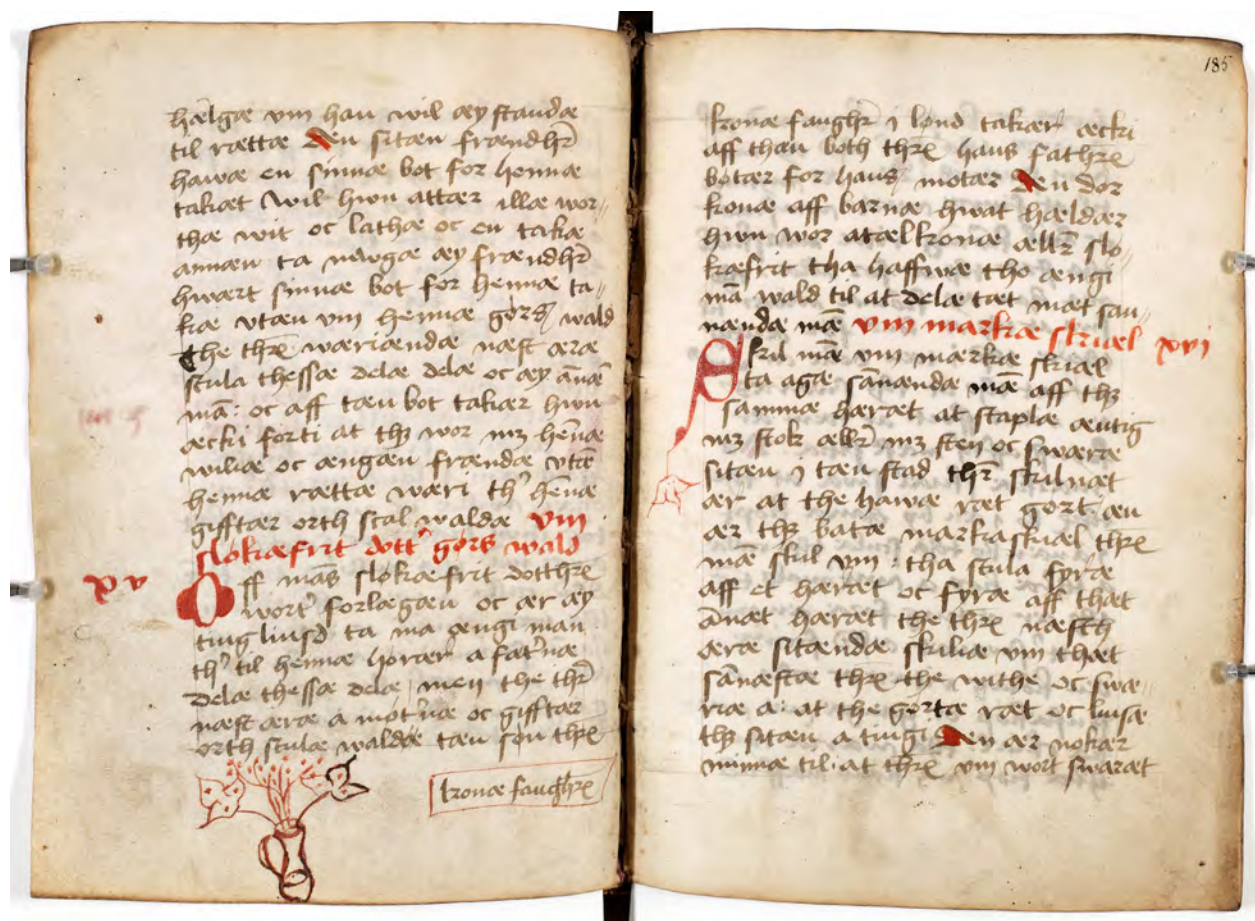 hælgæ vm han wil æy standæ
til rættæ Æn sitæn frændhr̄
hawæ en sinnæ bot for hennæ
takæt wil hwn attær illæ wor//
thæ wit oc lathæ oc en takæ
annæn ta mwgæ æy frændhr̄
hwært sinnæ bot for hennæ ta//
kæ vtæn vm hennæ görs wald
the thr̄e wæriændæ næst æræ
scula thessæ delæ delæ oc æy ānæ̅
mā: oc aff tæn bot takær hwn
æcki forti at thꝫ wor mꝫ hēnæ
wiliæ oc ængæn frændæ vtæ̅
hennæ rættæ wæri th' hēnæ
gifftær orth scal waldæ vm
slokæfrit dott' görs wald
xv
Off mās slokæfrit dotthr̄e
wort' forlægæn oc ær æy
tingliusd ta ma ængi man
th' til hennæ horær a fat'næ
delæ thessæ delæ, men the thr̄
næst æræ a mot'næ oc gifftær
orth sculæ waldæ tæn son thr̄e
konæ faughr̄e
185
konæ faughr̄ i lond takær æcki
aff then both thr̄e hans fathr̄e
bøtær for hans motær Æn dør
konæ aff barnæ hwat hældær
hwn wor atælkonæ ællr̄ slo//
kæfrit tha haffwæ tho ængi
mā wald til at delæ tæt mæt san//
nændæ mæ̅ vm markæ skiæl xvi
Skil mæ̅ vm mærkæ skiæl
ta agæ sānændæ mæ̅ aff thꝫ
sammæ hæræt at staplæ æntig
mꝫ stok ællr̄ mꝫ sten oc swæræ
sitæn i tæn stad thr̄ skilnæt
ær at the hawæ ræt gört, æn
ær thꝫ batæ markaskiæl thr̄e
mæ̅ skil vm: tha scula fyræ
aff et hæræt oc fyræ aff thæt
ānæt hæræt the thr̄e næsth
æræ sitændæ skiliæ vm thæt
sānæstæ thr̄e the withe oc swæ//
riæ a: at the görtæ ræt oc liusæ
thꝫ sitæn a tingi Æn ær nokær
minnæ til: at thr̄e vm wort swaræt